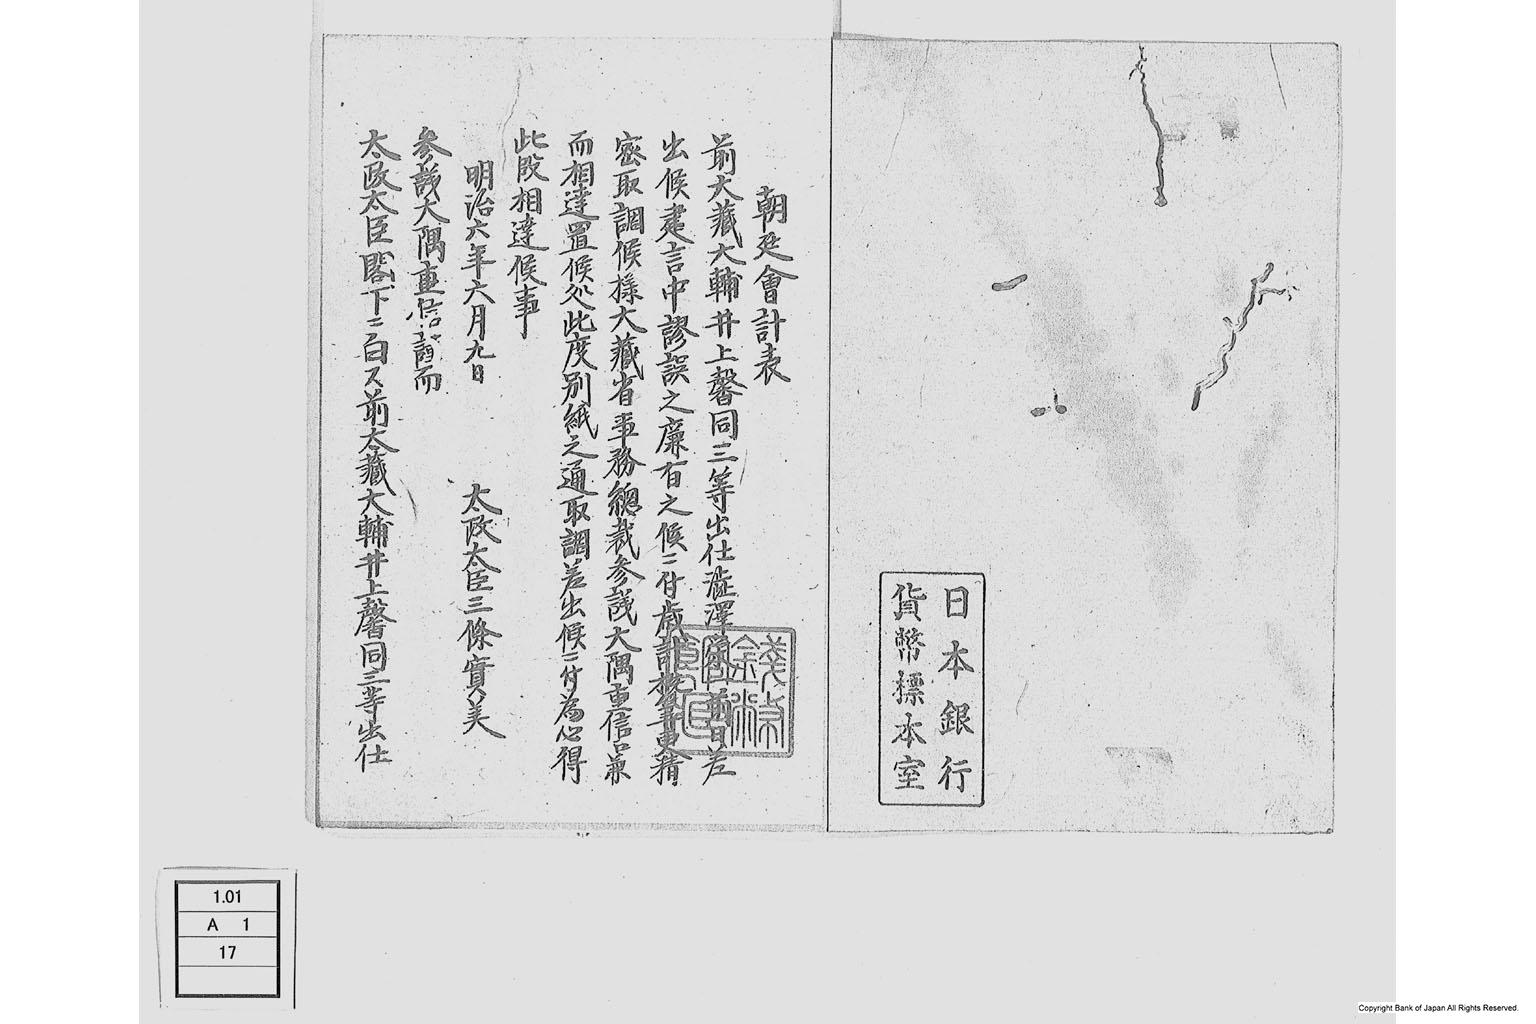 日本銀行
貨幣標本室
朝廷會計表
前大藏大輔井上馨同三等出仕澁澤榮一前日差
出候建言中謬誤之廉有之候ニ付歳計
更精
密取調候樣大藏省事務總裁参議大隅重信江兼
而相達置候処此度別紙之通取調差出候ニ付為心得
此段相達候事
明治六年六月九日
太政太臣三條實美
参議大隅重信謹而
太政太臣閣下ニ白ス前太藏大輔井上馨同三等出仕
1.01
A 1
17
Copyright Bank of Japan All Rights Reserved.